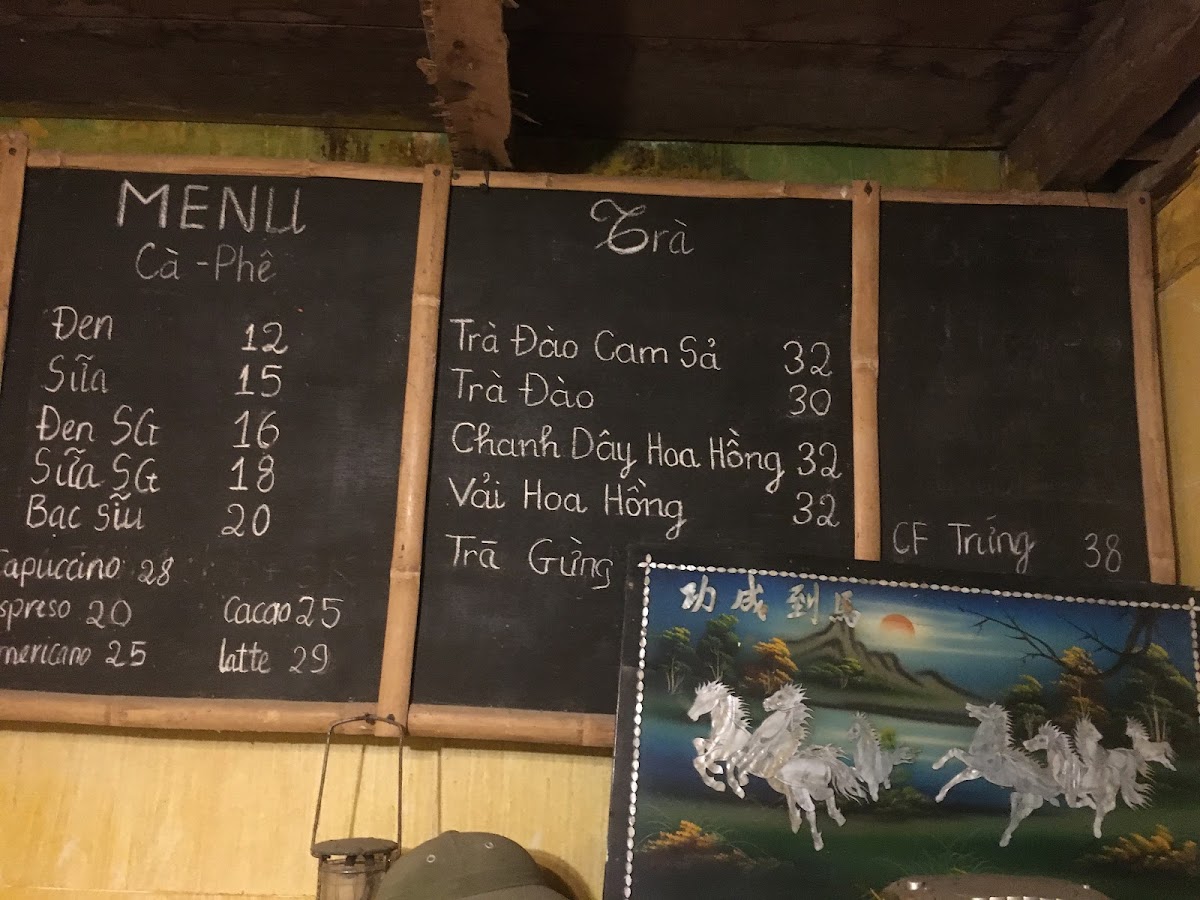 MENU
Cà - Phê
Đen 12
Sữa 15
Đen SG 16
Sữa SG 18
Bạc sỉu 20
Capuccino 28
spreso 20 Cacao 25
mericano 25 latte 29
Trà
Trà Đào Cam Sả 32
Trà Đào 30
Chanh Dây Hoa Hồng 32
Vải Hoa Hồng 32
Trà Gừng
CF Trứng 38
功成到馬